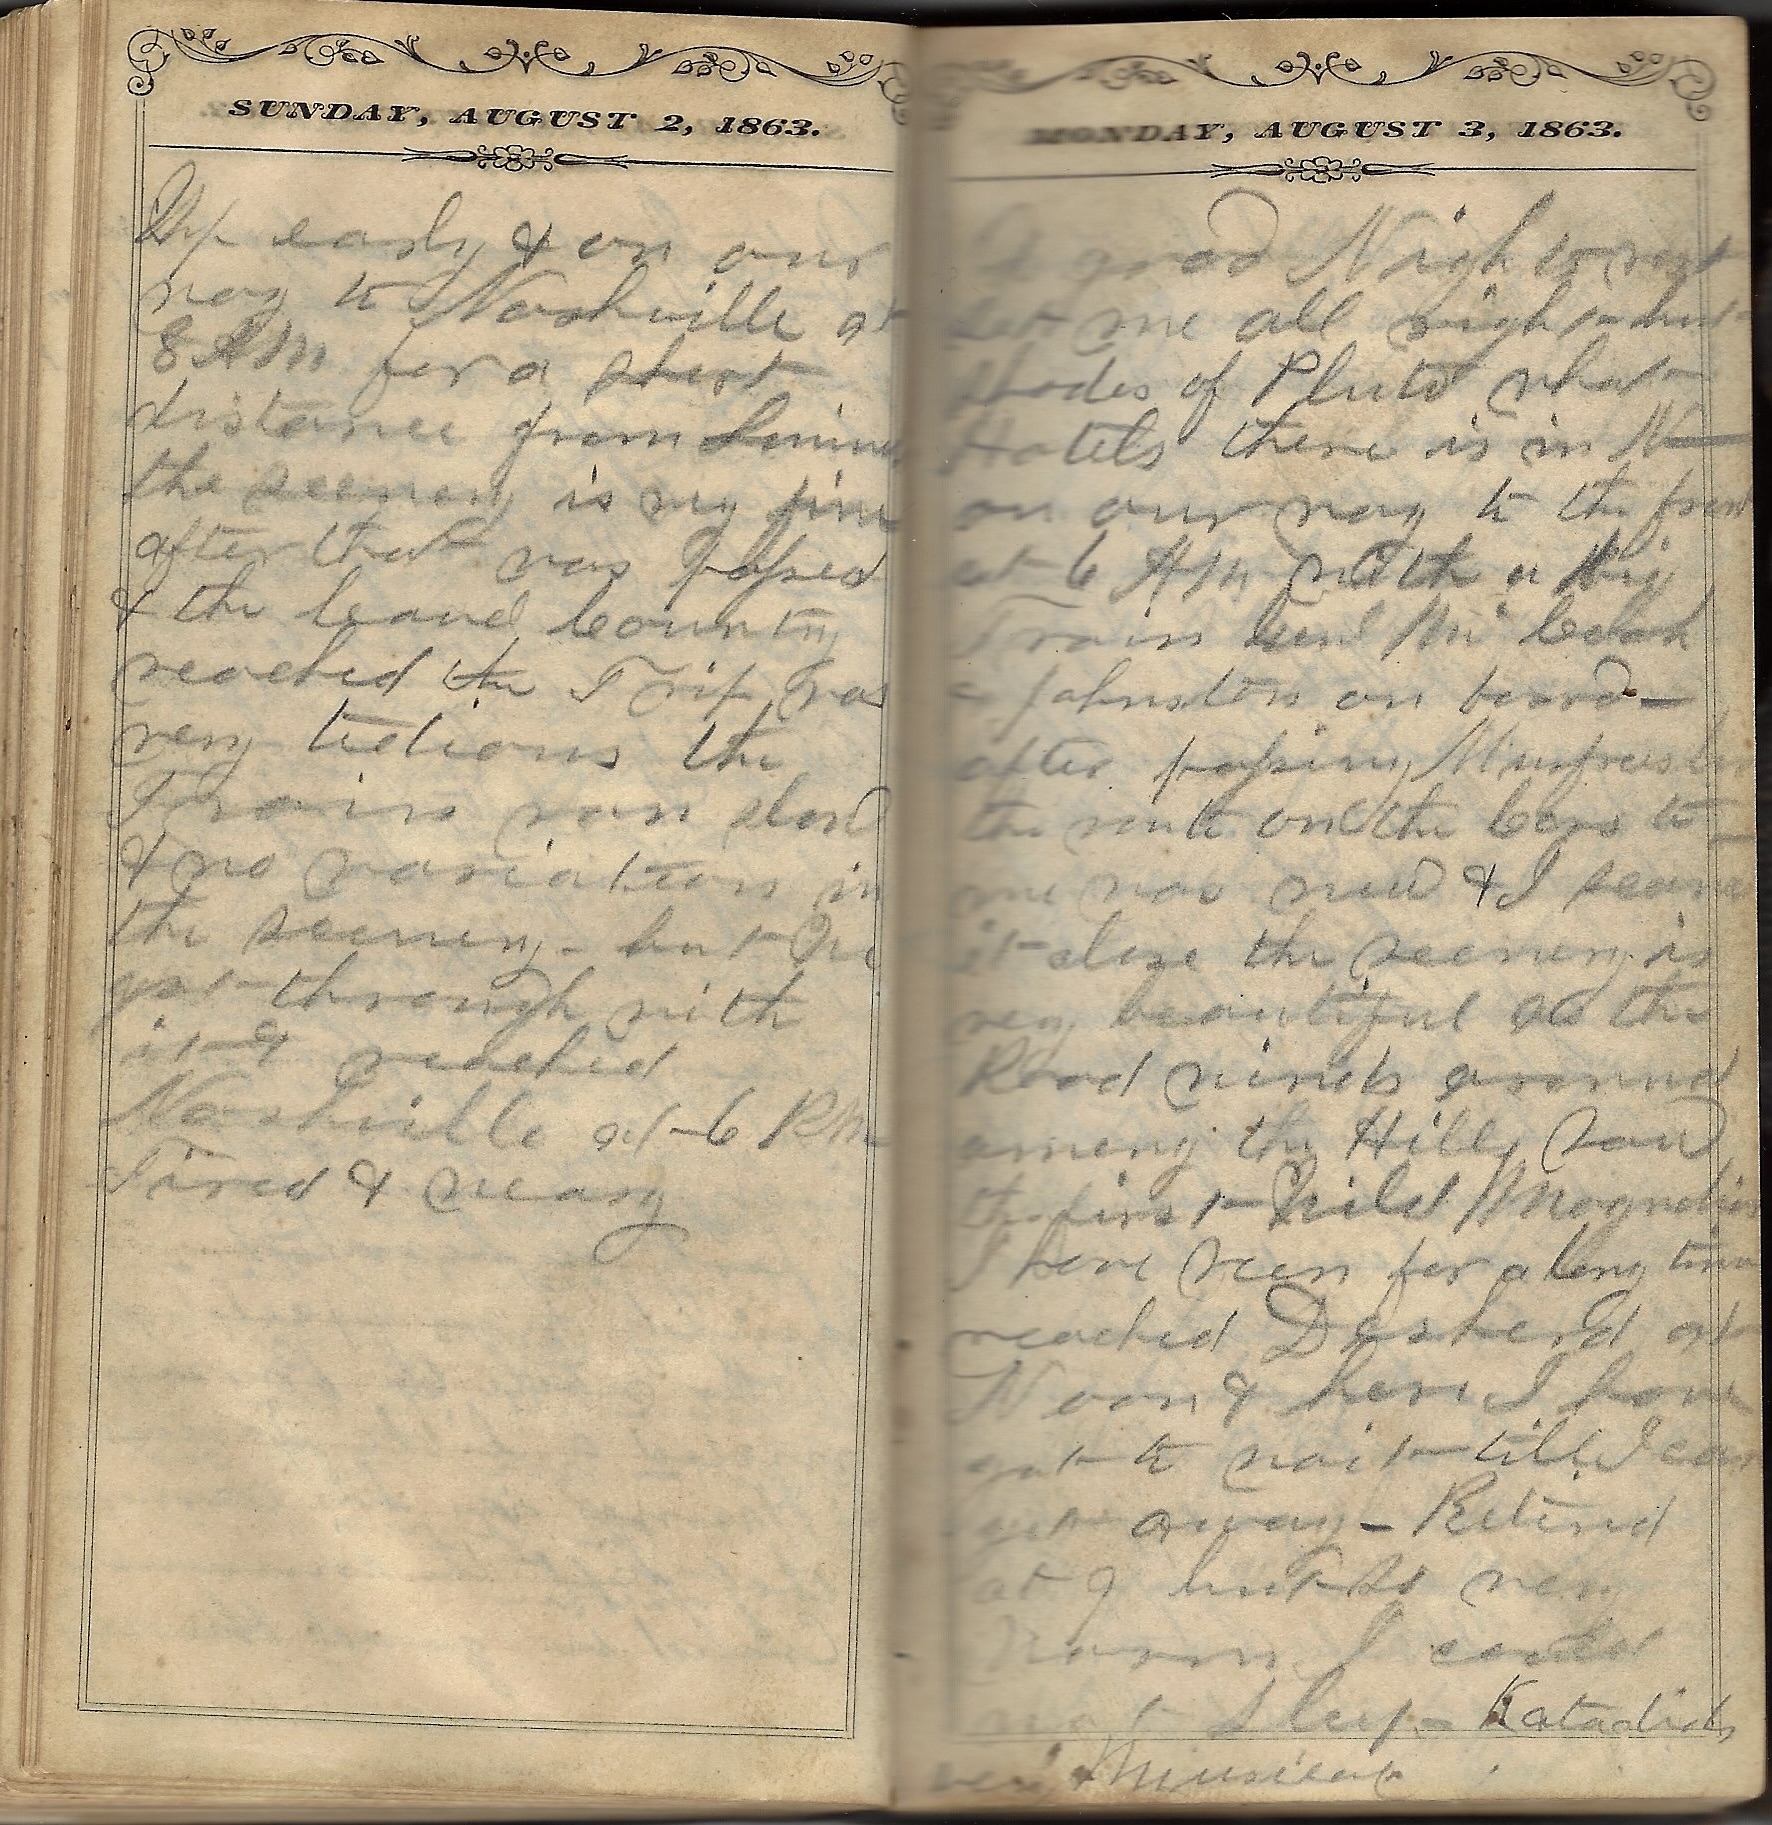 SUNDAY, AUGUST 2, 1863.
Up early & on our
way to Nashville at
8 AM for a short
distance from
the scenery is very fine
after that was passed
& the leavel Country
reached the Trip was
very tedious the
Trains run slow
& no variation in
the scenery - but We
got through with
it & reached
Nashville at 6 P.M.
Tired & weary
MONDAY, AUGUST 3, 1863.
A good Nights rest
me all right
Shades of Pluto what
Hotels there is in N—
on our way to the front
at 6 AM with a Big
Train Mr Cook
& Johnston on board —
after passing Murfreesboro
the route on the Cars to
me was new & I scaned
it close the scenery is
very beautiful as the
Road winds around
among the Hills, saw
the first Wild Magnolias
I have seen for along time
reached Decherd at
Noon & here I have
got to wait till I can
get away - Retired
at 9 but so very
Warm I could
not sleep - Katadids
very Musical